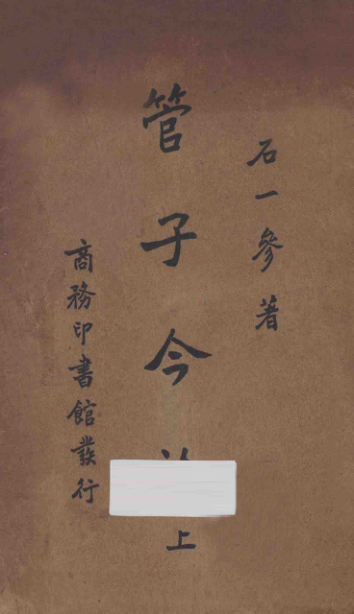 石一參著
管子今
上
商務印書館發行